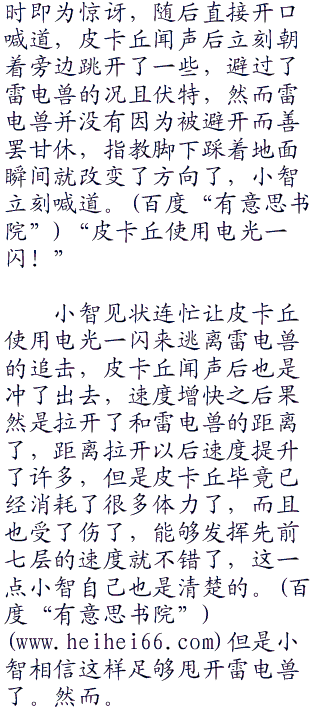 时即为惊讶，随后直接开口
喊道，皮卡丘闻声后立刻朝
着旁边跳开了一些，避过了
雷电兽的况且伏特，然而雷
电兽并没有因为被避开而善
罢甘休，指教脚下踩着地面
瞬间就改变了方向了，小智
立刻喊道。(百度“有意思书
院”)“皮卡丘使用电光一
闪！”
小智见状连忙让皮卡丘
使用电光一闪来逃离雷电兽
的追击，皮卡丘闻声后也是
冲了出去，速度增快之后果
然是拉开了和雷电兽的距离
了，距离拉开以后速度提升
了许多，但是皮卡丘毕竟已
经消耗了很多体力了，而且
也受了伤了，能够发挥先前
七层的速度就不错了，这一
点小智自己也是清楚的。(百
度“有意思书院”)
(www.heihei66.com)但是小
智相信这样足够甩开雷电兽
了。然而。